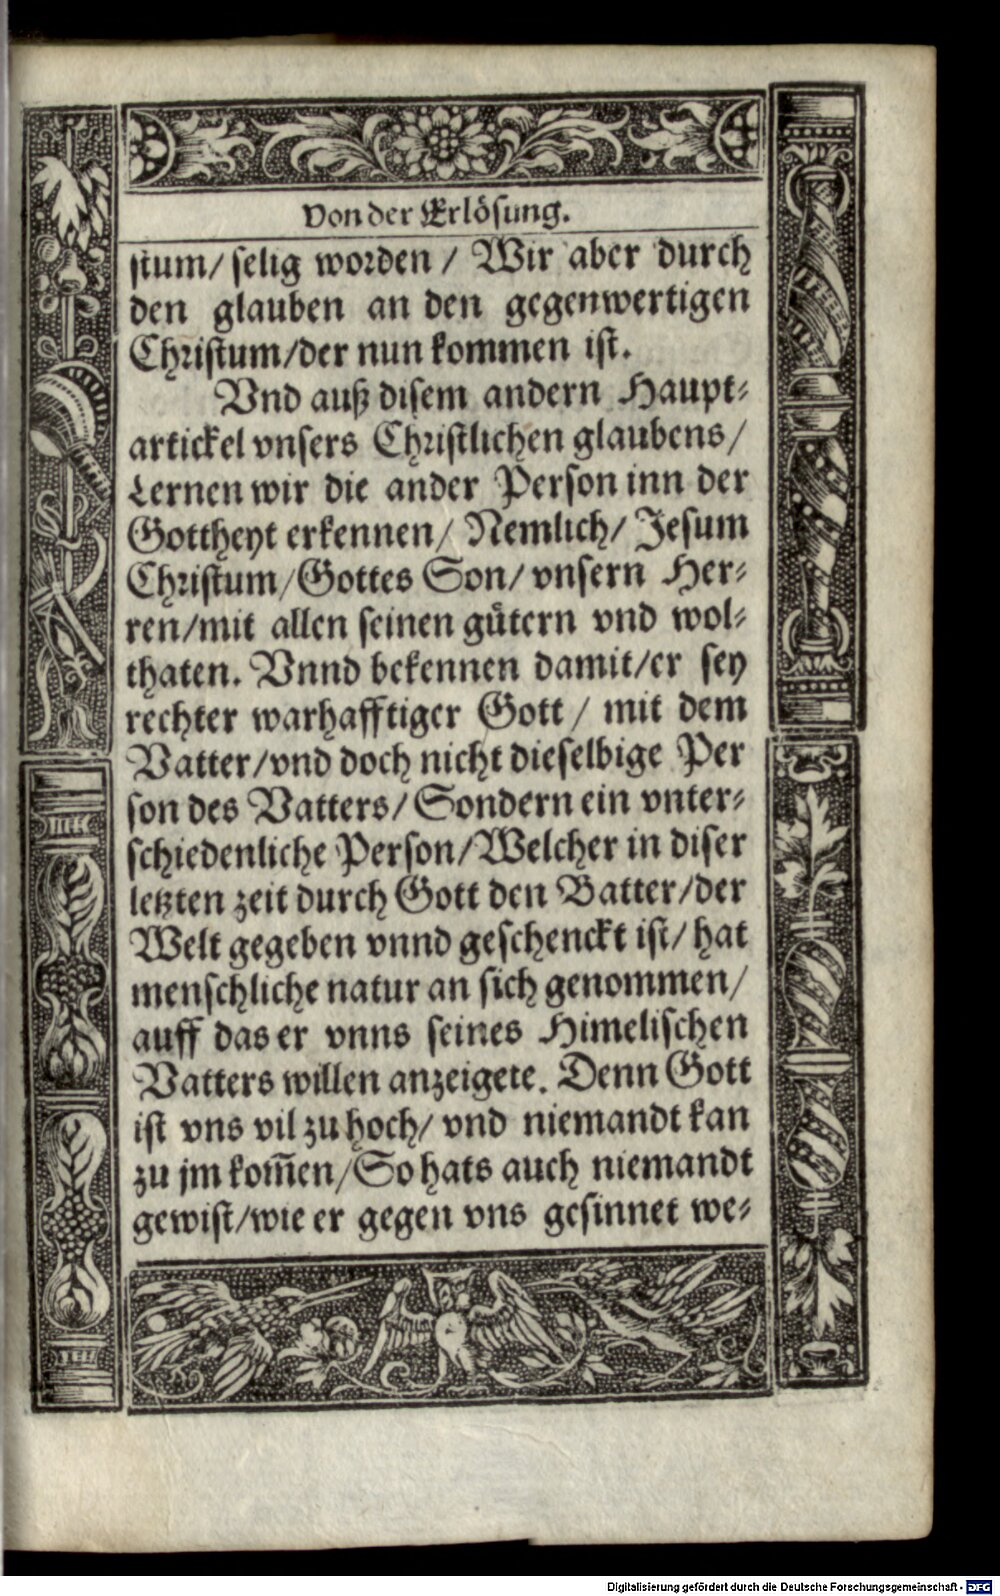 Von der Erlösung.
stum/ selig worden / Wir aber durch
den glauben an den gegenwertigen
Christum/der nun kommen ist.
Vnd auß disem andern Haupt⸗
artickel vnsers Christlichen glaubens/
Lernen wir die ander Person inn der
Gottheyt erkennen/ Nemlich/ Jesum
Christum/Gottes Son/ vnsern Her⸗
ren/mit allen seinen guͤtern vnd wol⸗
thaten. Vnnd bekennen damit/er sey
rechter warhafftiger Gott / mit dem
Vatter/vnd doch nicht dieselbige Per
son des Vatters/ Sondern ein vnter⸗
schiedenliche Person/Welcher in diser
letzten zeit durch Gott den Batter/der
Welt gegeben vnnd geschenckt ist/ hat
menschliche natur an sich genommen/
auff das er vnns seines Himelischen
Vatters willen anzeigete. Denn Gott
ist vns vil zu hoch/ vnd niemandt kan
zu jm kom̃en/So hats auch niemandt
gewist/wie er gegen vns gesinnet we⸗
Digitalisierung gefördert durch die Deutsche Forschungsgemeinschaft - DFG